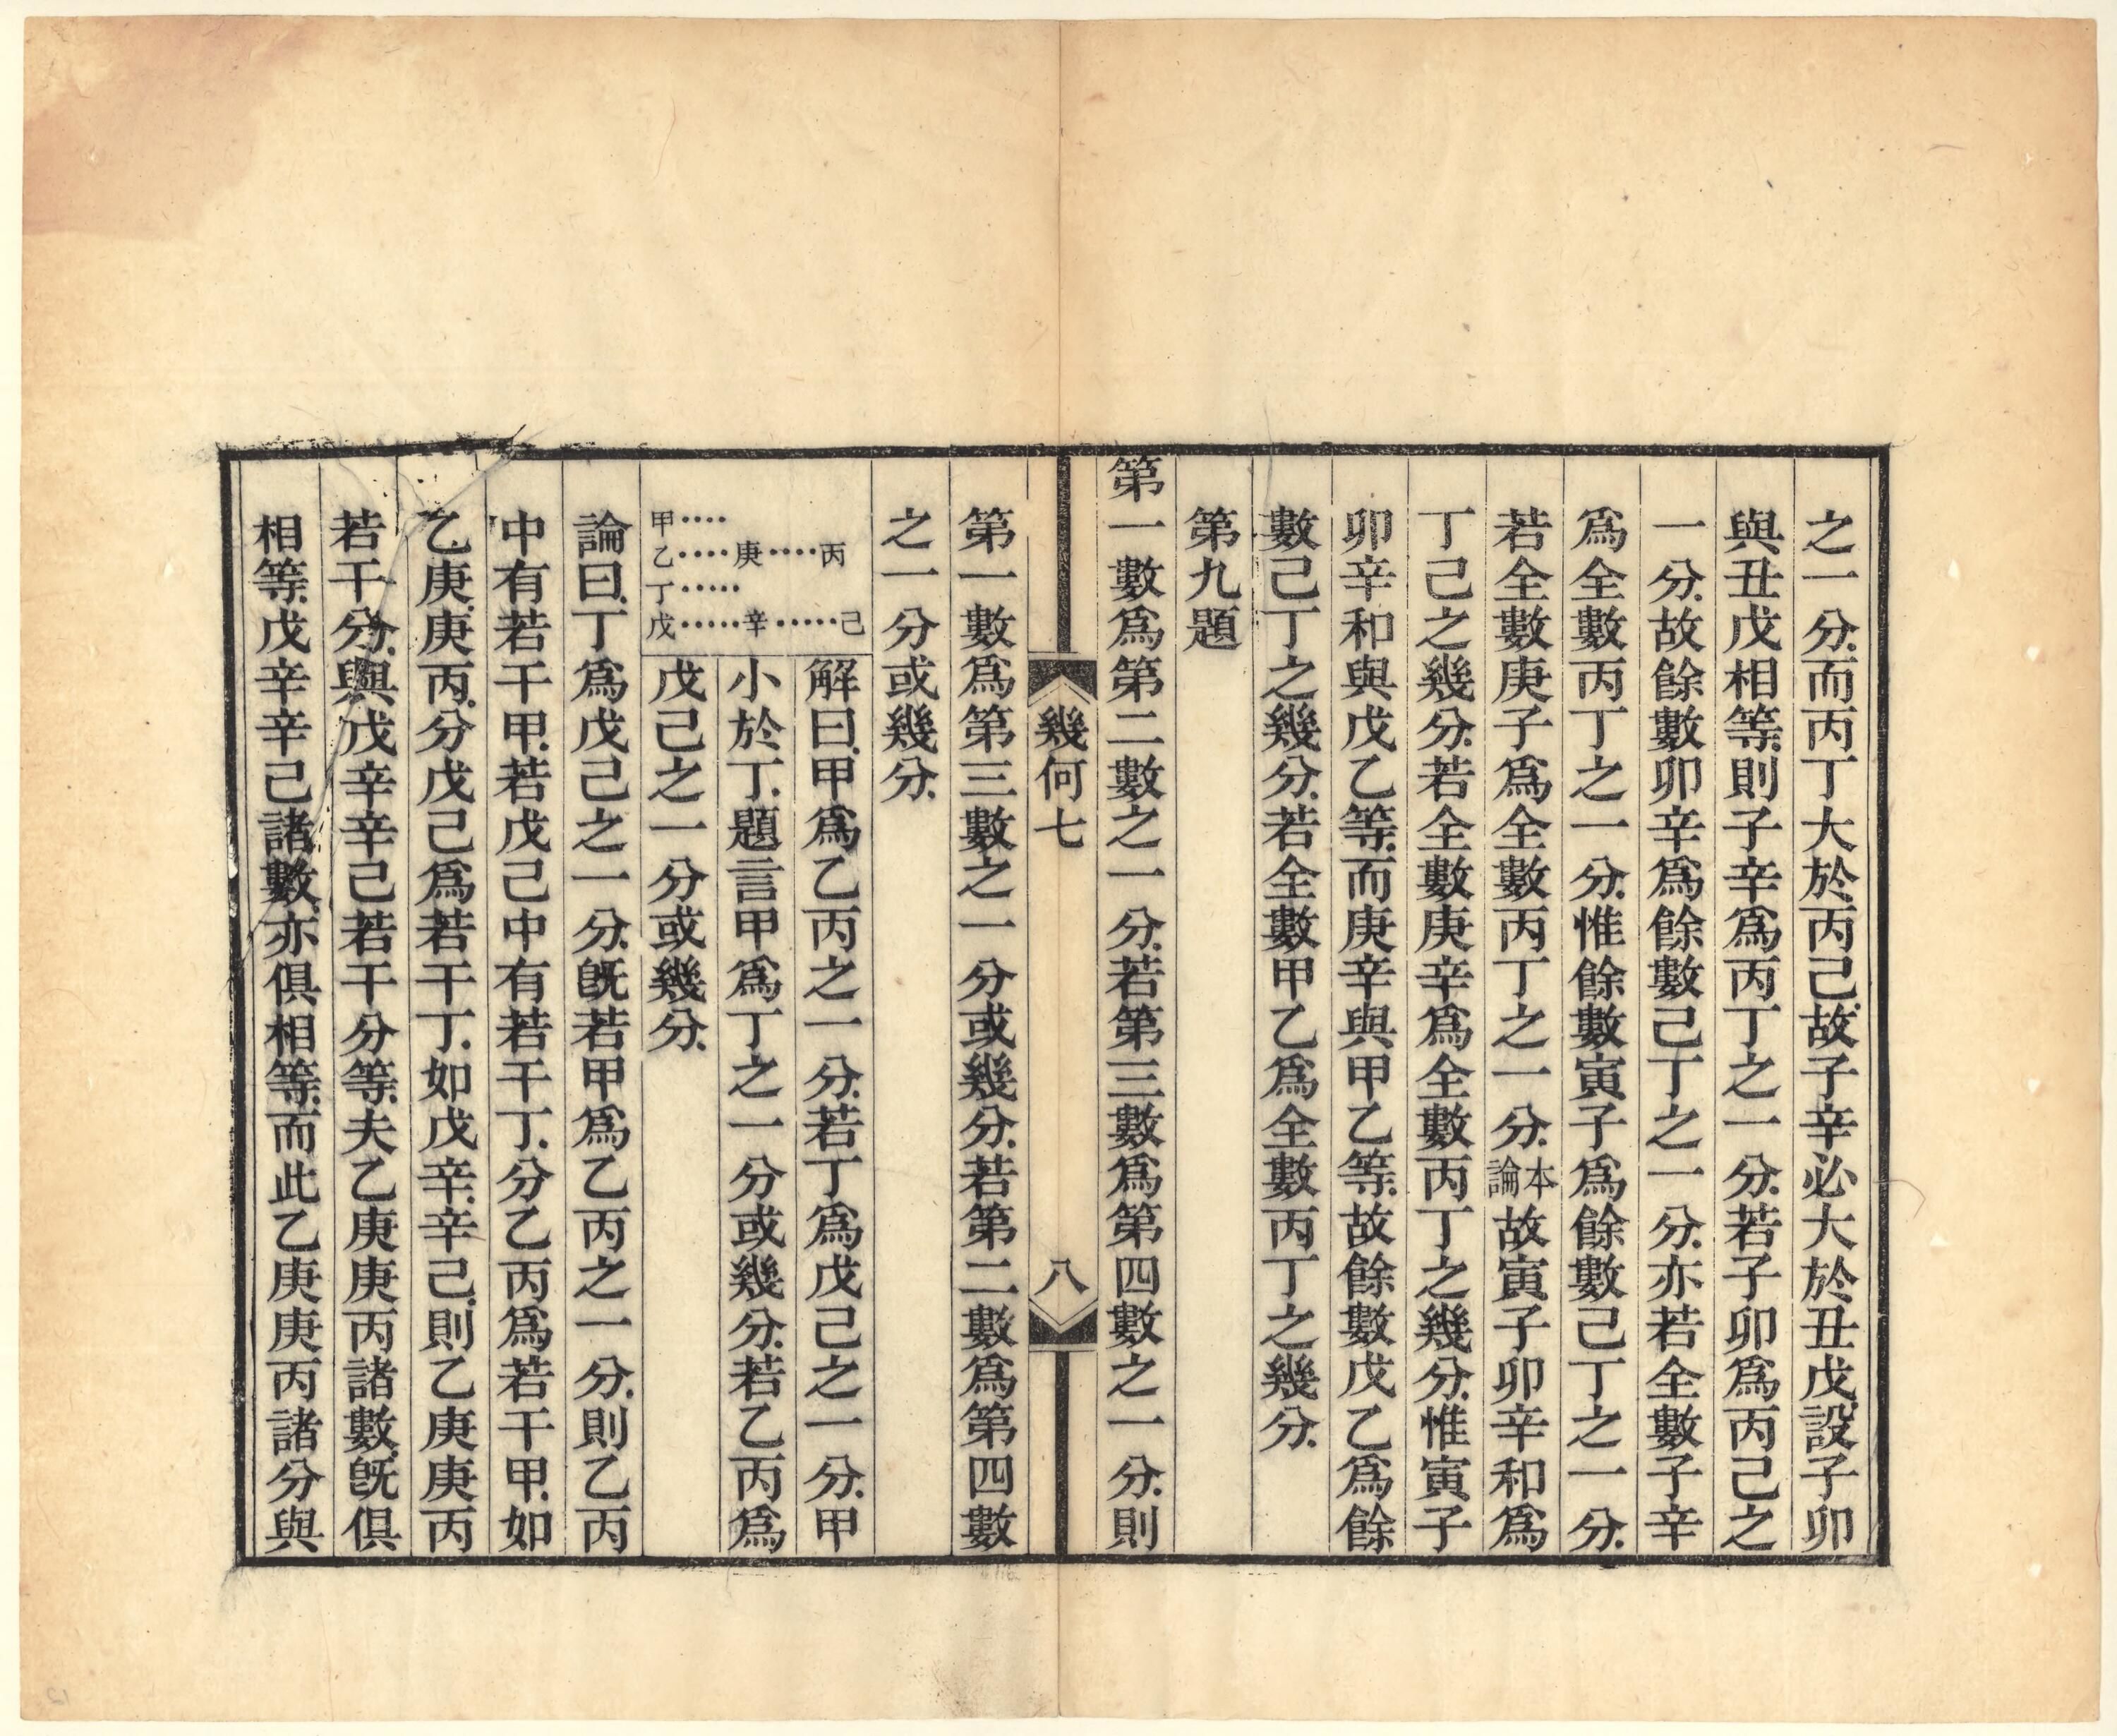 之一分.而丙丁大於丙己.故子辛必大於丑戊.設子卯
與丑戊相等.則子辛爲丙丁之一分.若子卯爲丙己之
一分.故餘數卯辛爲餘數己丁之一分.亦若全數子辛
爲全數丙丁之一分.惟餘數寅子爲餘數己丁之一分.
若全數庚子爲全數丙丁之一分.本論故寅子卯辛和爲
丁己之幾分.若全數庚辛爲全數丙丁之幾分.惟寅子
卯辛和與戊乙等.而庚辛與甲乙等.故餘數戊乙爲餘
數己丁之幾分.若全數甲乙爲全數丙丁之幾分.
第九題
第一數爲第二數之一分.若第三數爲第四數之一分.則
幾何七
八
第一數爲第三數之一分或幾分.若第二數爲第四數
之一分或幾分.
甲····
乙····庚····丙
丁·····
戊·····辛·····己
解曰.甲爲乙丙之一分.若丁爲戊己之一分.甲
小於丁.題言甲爲丁之一分或幾分.若乙丙爲
戊己之一分或幾分.
論曰.丁爲戊己之一分.旣若甲爲乙丙之一分.則乙丙
中有若干甲.若戊己中有若干丁.分乙丙爲若干甲.如
乙庚.庚丙.分戊己爲若干丁.如戊辛.辛己.則乙庚庚丙
若干分.與戊辛辛己若干分等.夫乙庚庚丙諸數.旣俱
相等.戊辛辛己諸數.亦俱相等.而此乙庚庚丙諸分與